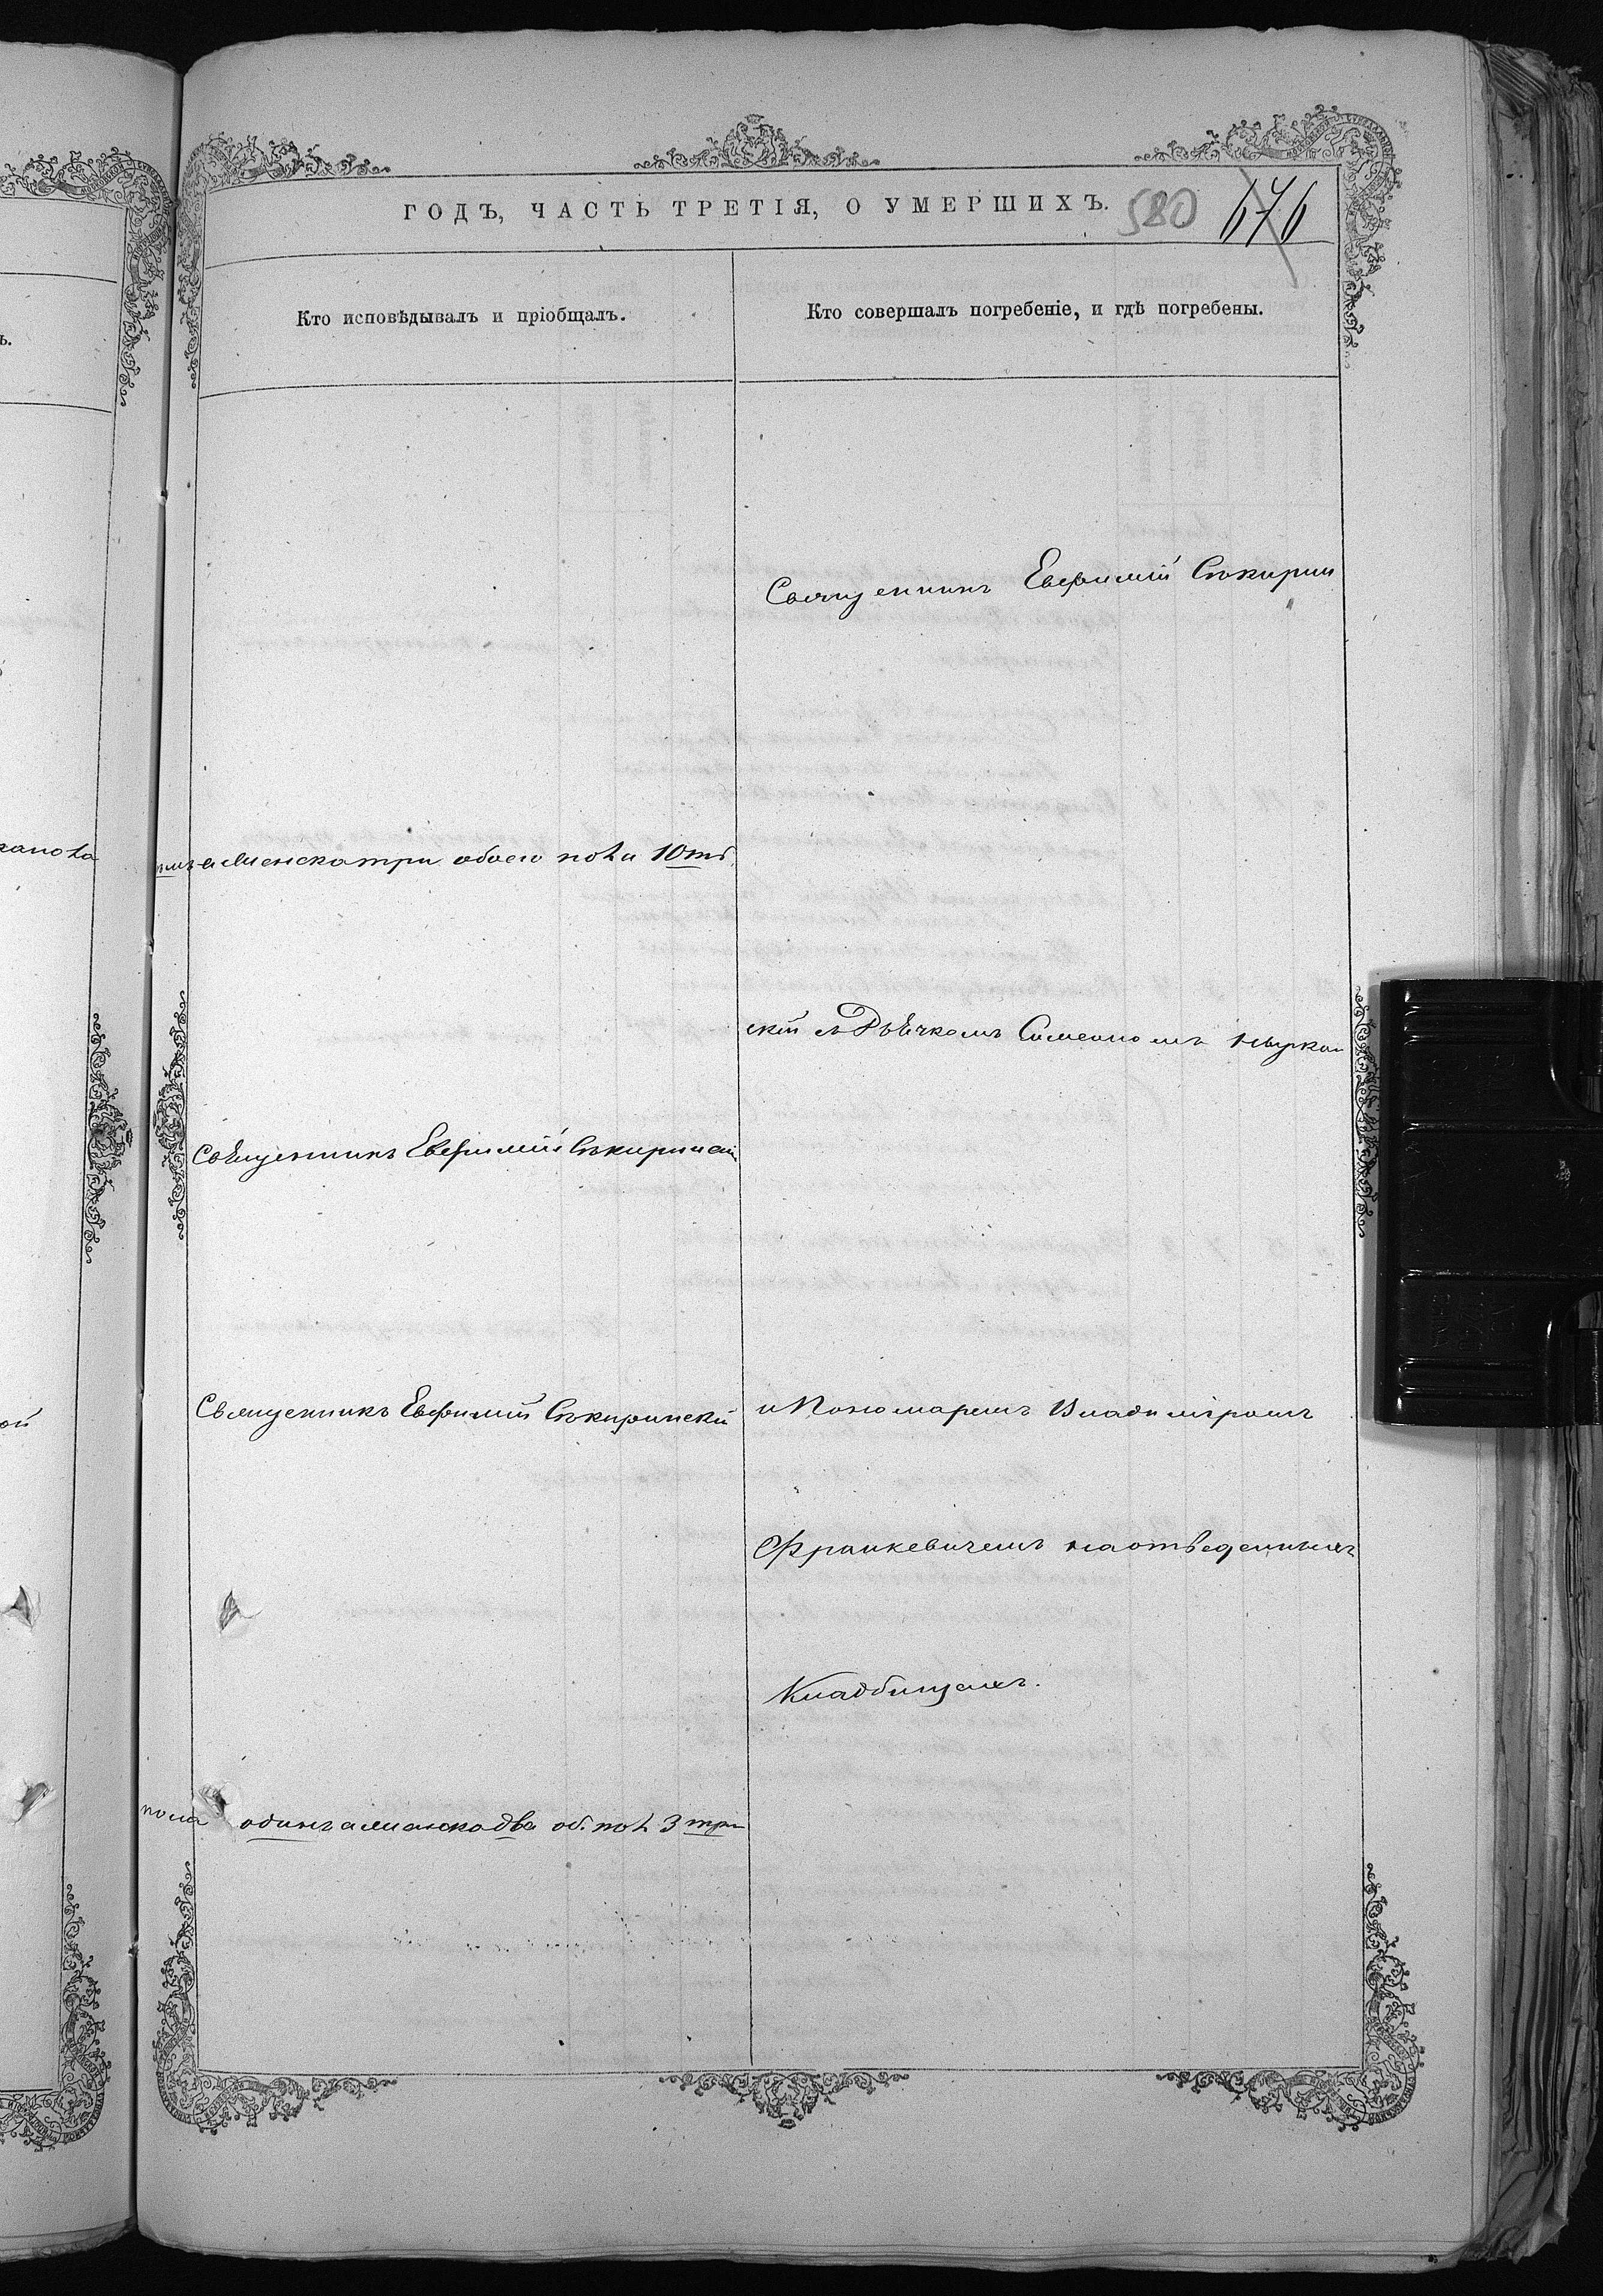 ГОДЪ, ЧАСТЬ ТРЕТІЯ, О УМЕРШИХЪ.
580 676
Кто исповѣдывалъ и пріобщалъ.
Кто совершалъ погребеніе, и гдѣ погребены.
Священникъ Евфимій Сѣкирин
а женска три обоего пола 10ть
скій съ Дьячкомъ Симеономъ
Священникъ Евфимій Сѣкиринскій
Священникъ Евфимій Сѣкиринскій
и Пономаремъ Владиміромъ
Франкевичемъ на отведенныхъ
Кладбищахъ.
пола одинъ а женска два об. пол. 3 три